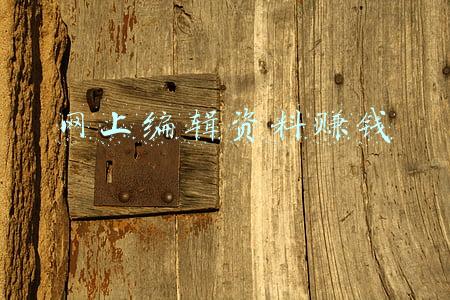 网上编辑资料赚钱